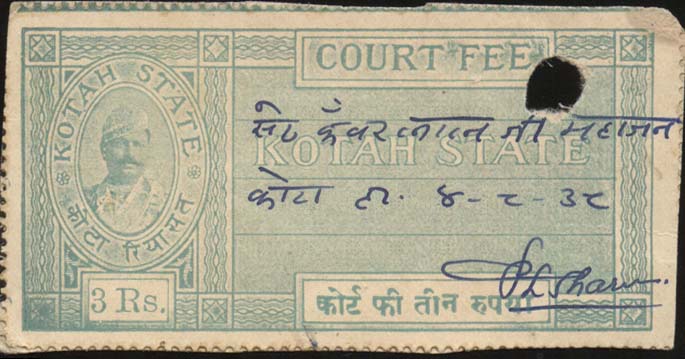 COURT FEE
KOTAH STATE
सेठ कँवरलाल जी महाजन
KOTAH STATE
कोटा ता. ४-८-३८
कोटा रियासत
3 Rs.
कोर्ट फी तीन रुपया